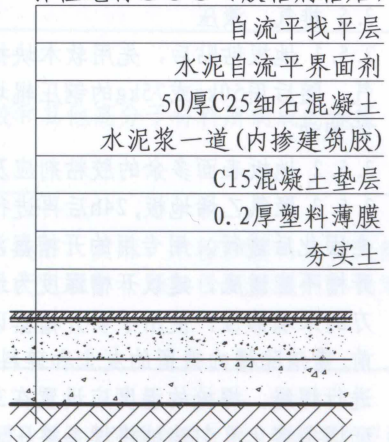 自流平找平层
水泥自流平界面剂
50厚C25细石混凝土
水泥浆一道(内掺建筑胶)
C15混凝土垫层
0.2厚塑料薄膜
夯实土